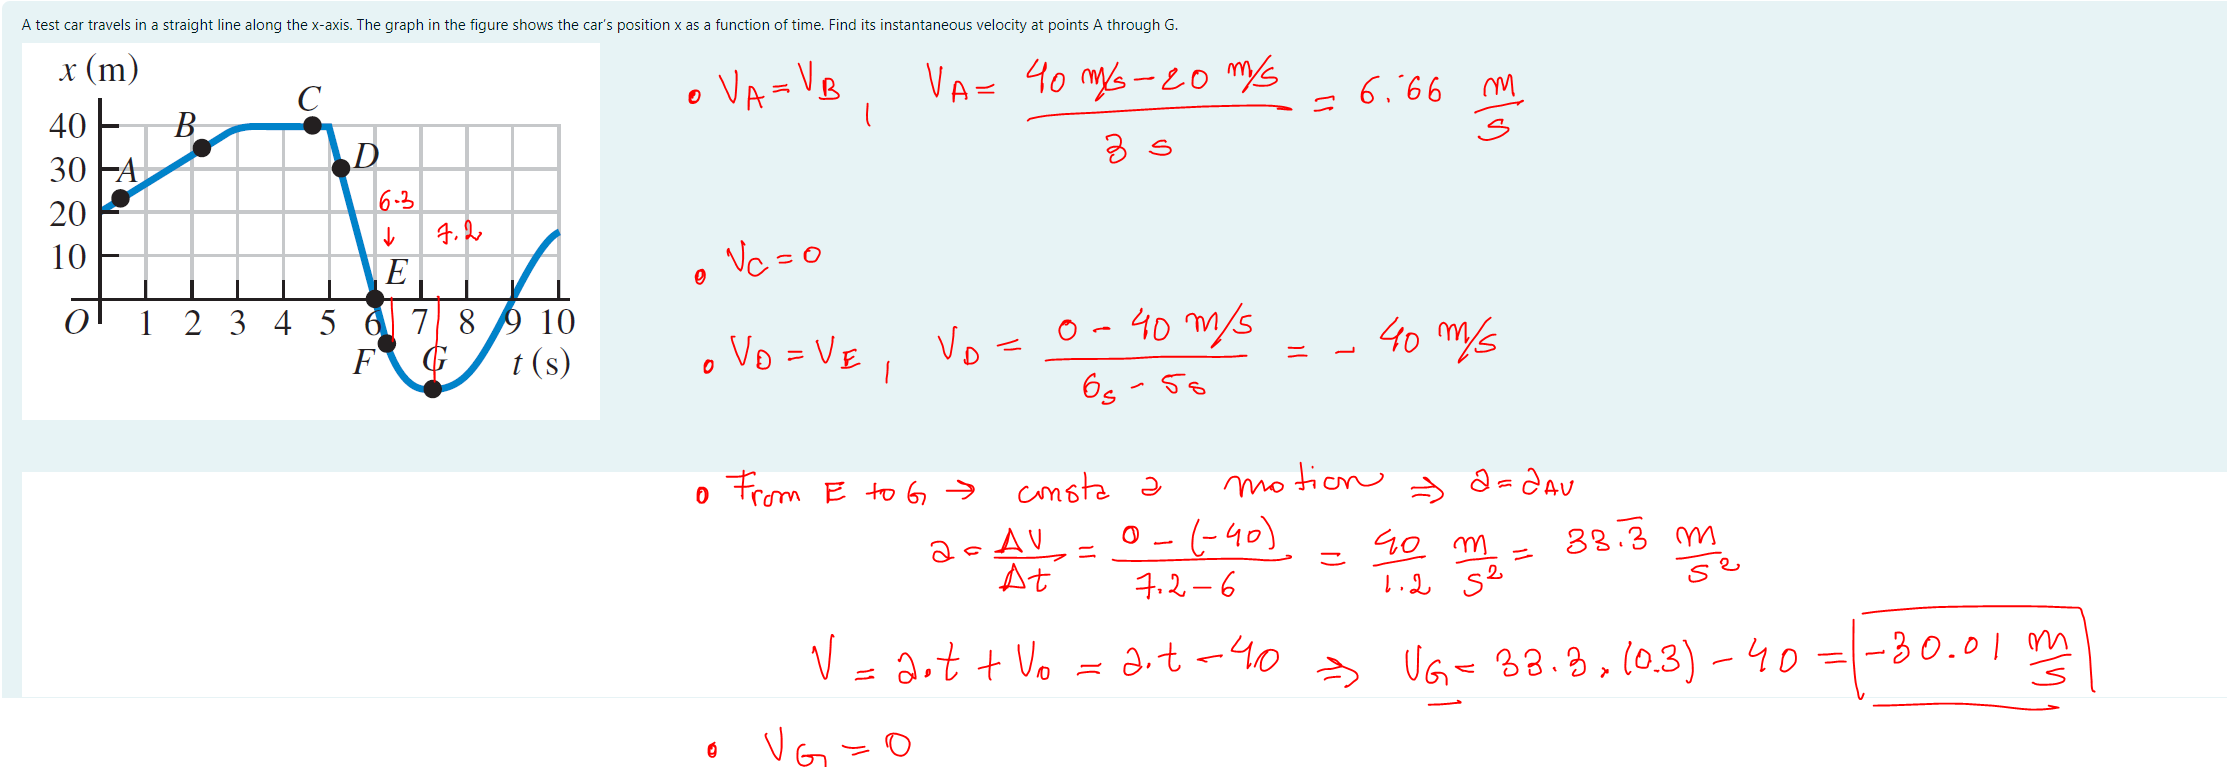 A test car travels in a straight line along the x-axis. The graph in the figure shows the car's position x as a function of time. Find its instantaneous velocity at points A through G.
x (m)
40
30
20
10
O 1 2 3 4 5 6 7 8 9 10
t (s)
A
B
C
D
E
F
G
6.3
↓
7.2
• VA = VB , VA = (40 m/s - 20 m/s) / 3 s = 6.66 m/s
• VC = 0
• VD = VE , VD = (0 - 40 m/s) / (6s - 5s) = - 40 m/s
• From E to G → consta a motion ⇒ a = aAV
a = ΔV/Δt = (0 - (-40)) / (7.2 - 6) = 40/1.2 m/s² = 33.3̅ m/s²
V = a.t + V0 = a.t - 40 ⇒ VG = 33.3 . (0.3) - 40 = -30.01 m/s
• VG = 0